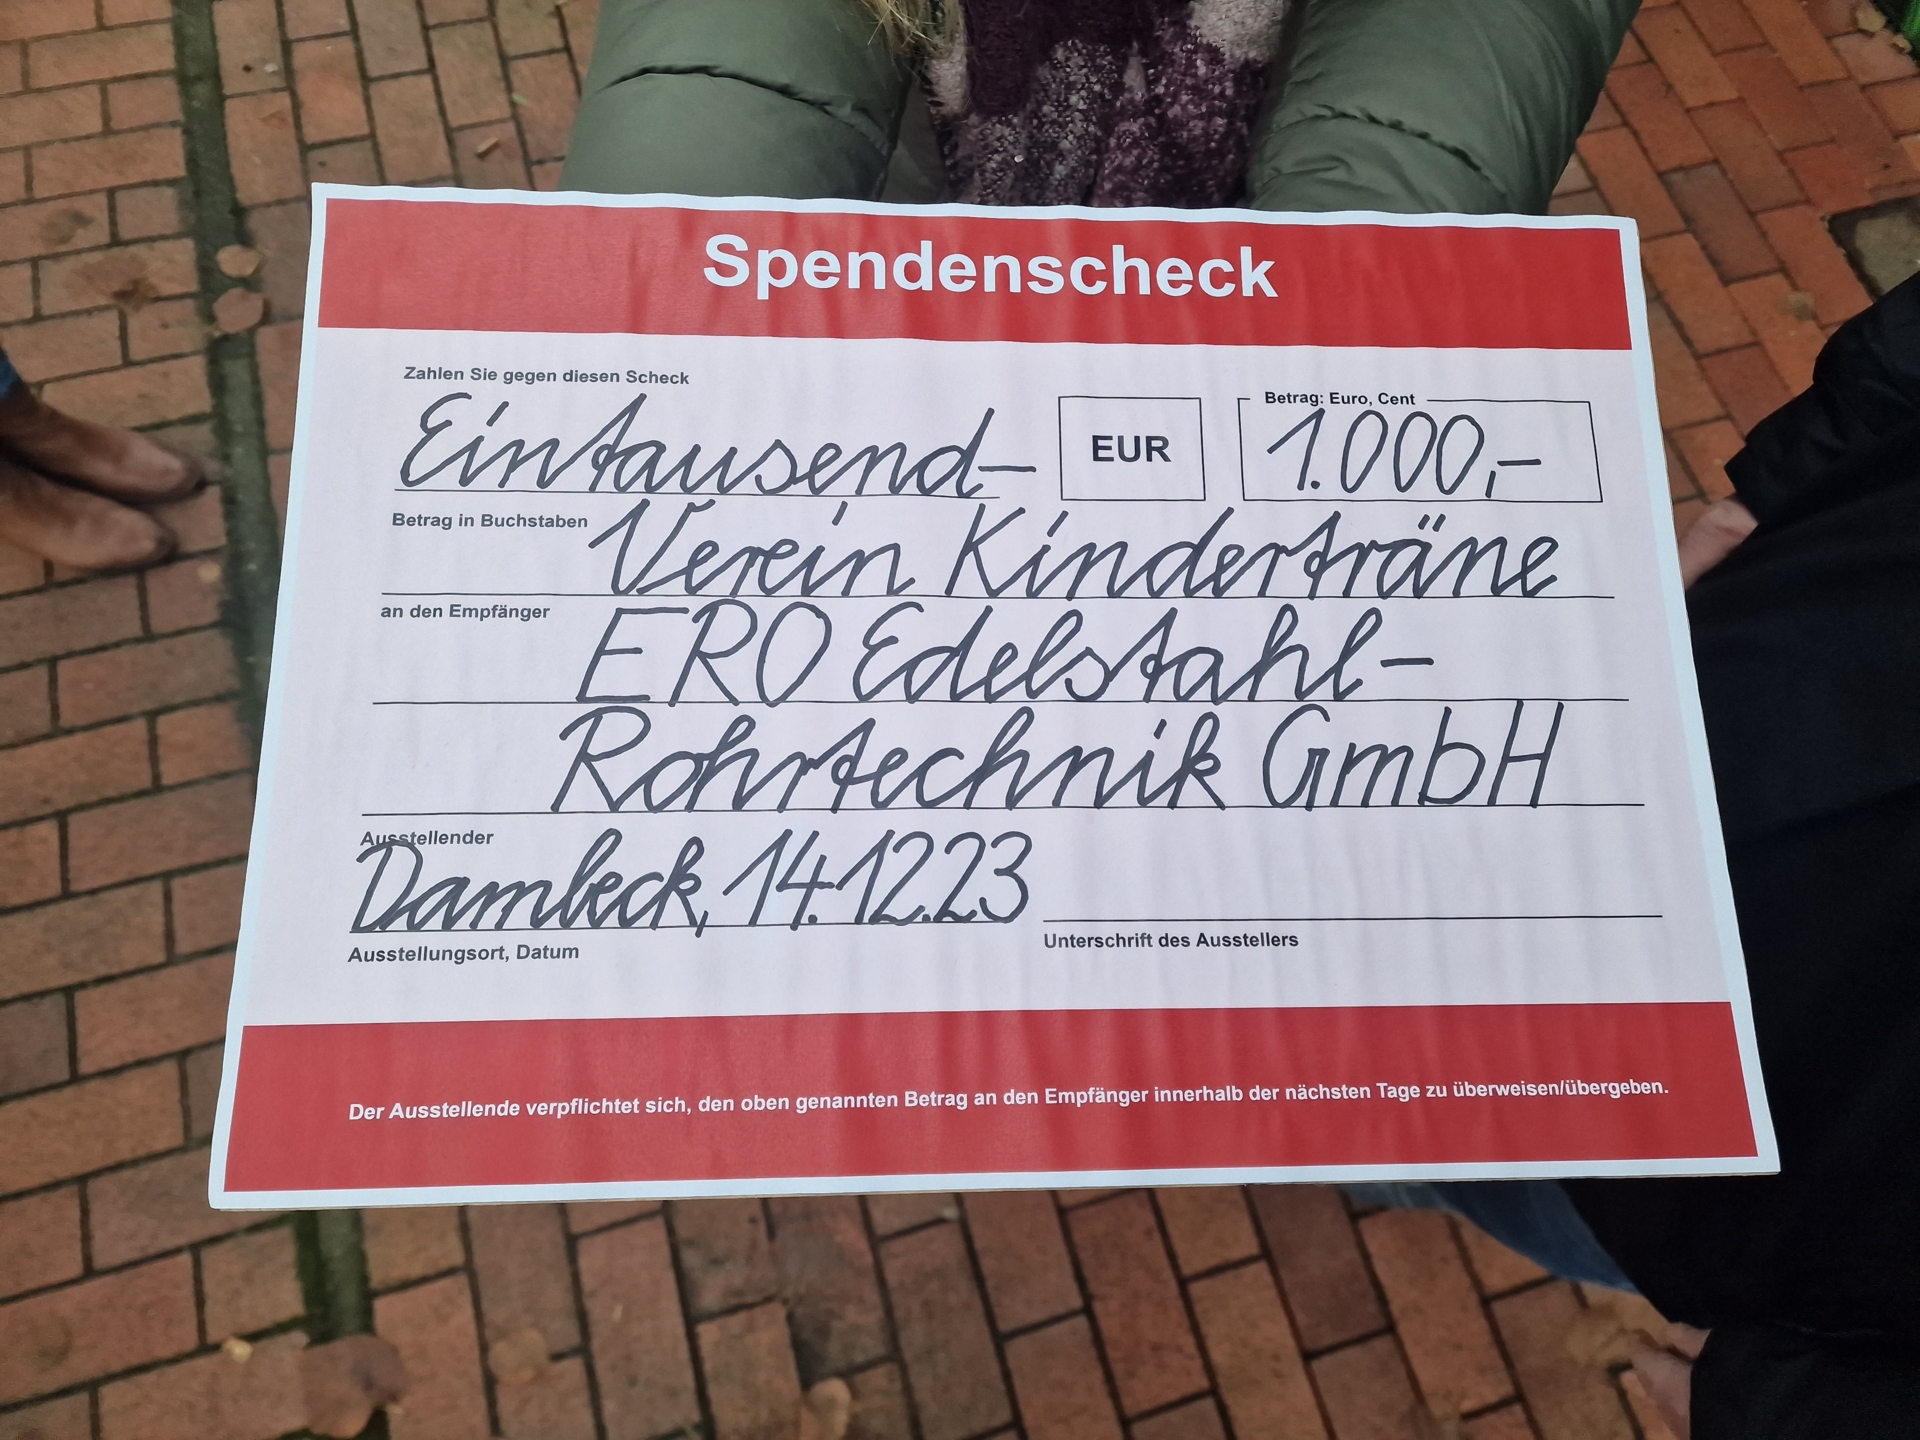 Spendenscheck
Zahlen Sie gegen diesen Scheck
Eintausend- EUR Betrag: Euro, Cent 1.000,-
Betrag in Buchstaben
Verein Kinderträne
an den Empfänger
ERO Edelstahl-
Rohrtechnik GmbH
Ausstellender
Dambeck, 14.12.23
Ausstellungsort, Datum Unterschrift des Ausstellers
Der Ausstellende verpflichtet sich, den oben genannten Betrag an den Empfänger innerhalb der nächsten Tage zu überweisen/übergeben.